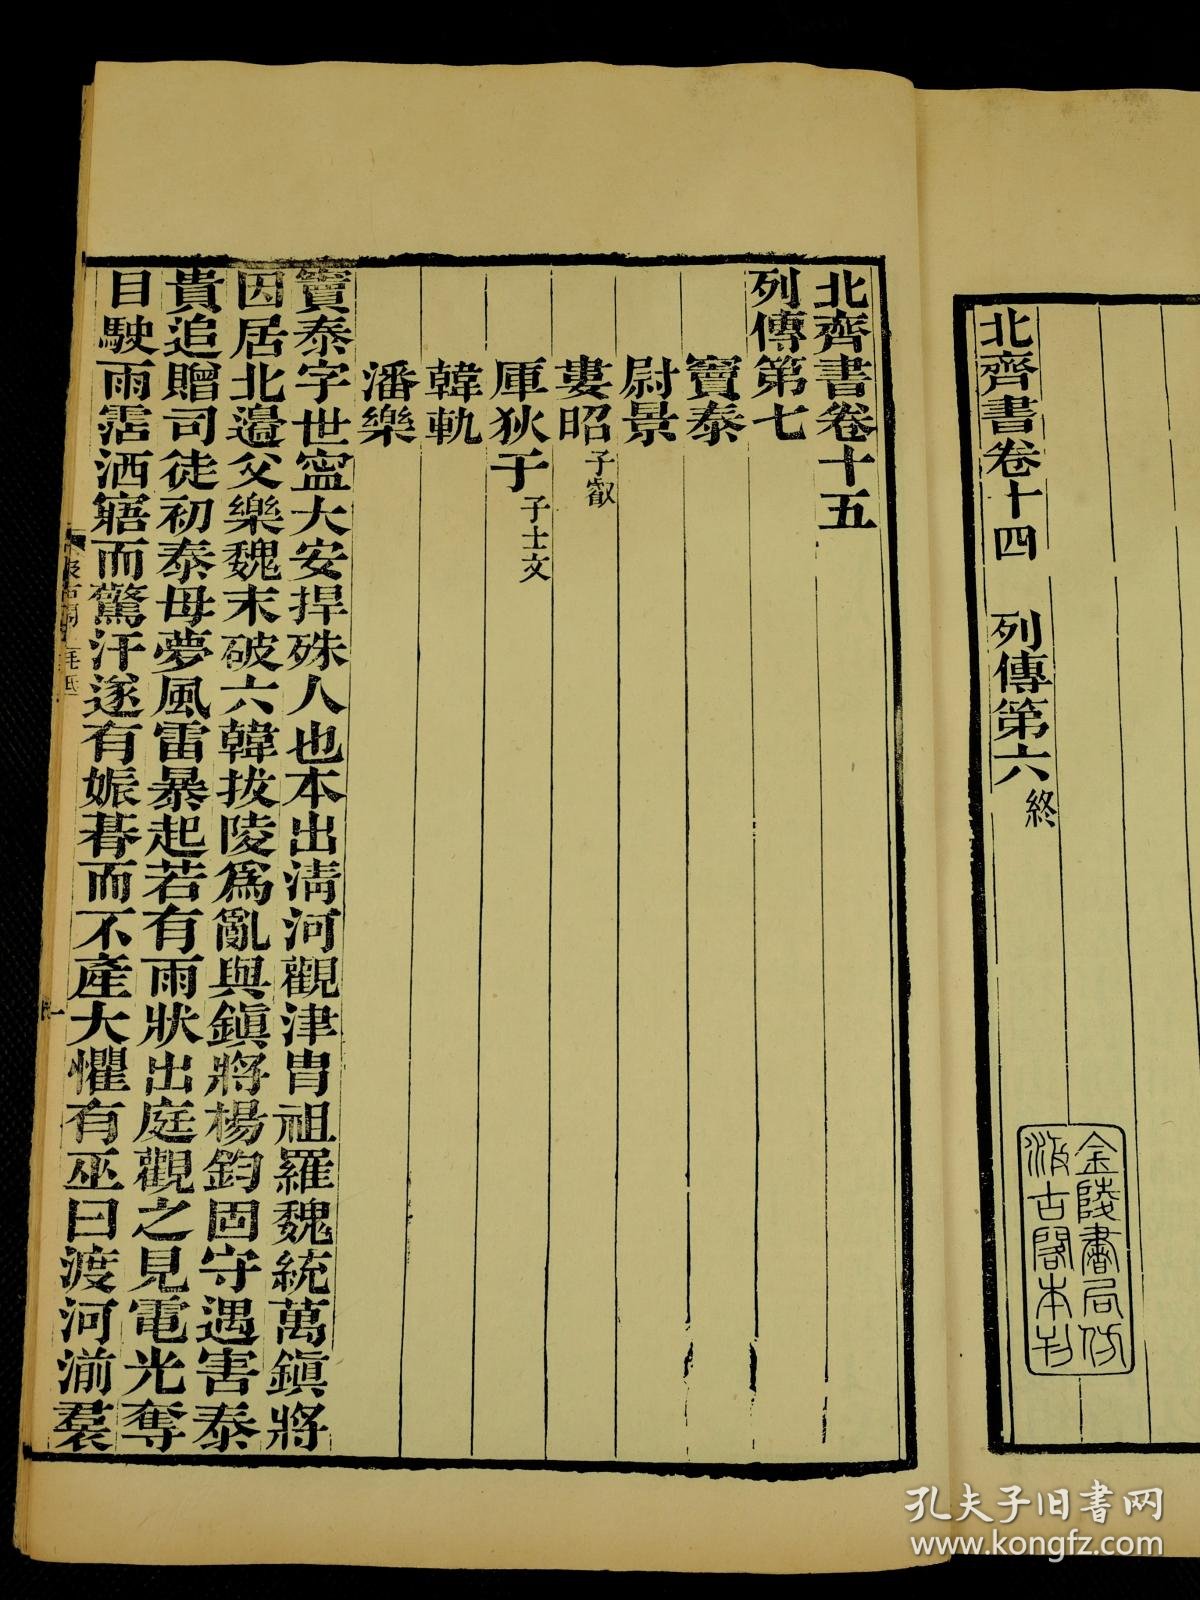 北齊書卷十四　列傳第六終
金陵書局仿
汲古閣本刊
北齊書卷十五
列傳第七
竇泰
尉景
婁昭子叡
厙狄干子士文
韓軌
潘樂
竇泰字世寍大安捍殊人也本出淸河觀津胄祖羅魏統萬鎭將
因居北邊父樂魏末破六韓拔陵爲亂與鎭將楊鈞固守遇害泰
貴追贈司徒初泰母夢風雷暴起若有雨狀出庭觀之見電光奪
目駛雨霑洒寤而驚汗遂有娠朞而不產大懼有巫曰渡河湔裠
孔夫子旧书网
www.kongfz.com